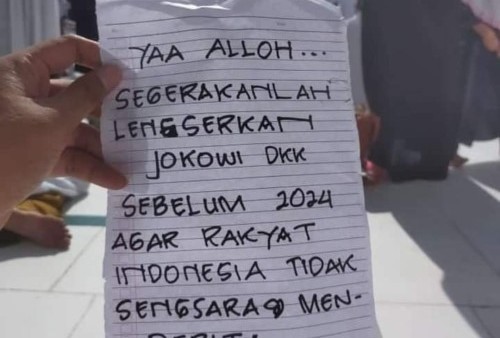 YAA ALLOH...
SEGERAKANLAH
LENGSERKAN
JOKOWI DKK
SEBELUM 2024
AGAR RAKYAT
INDONESIA TIDAK
SENGSARA & MEN-